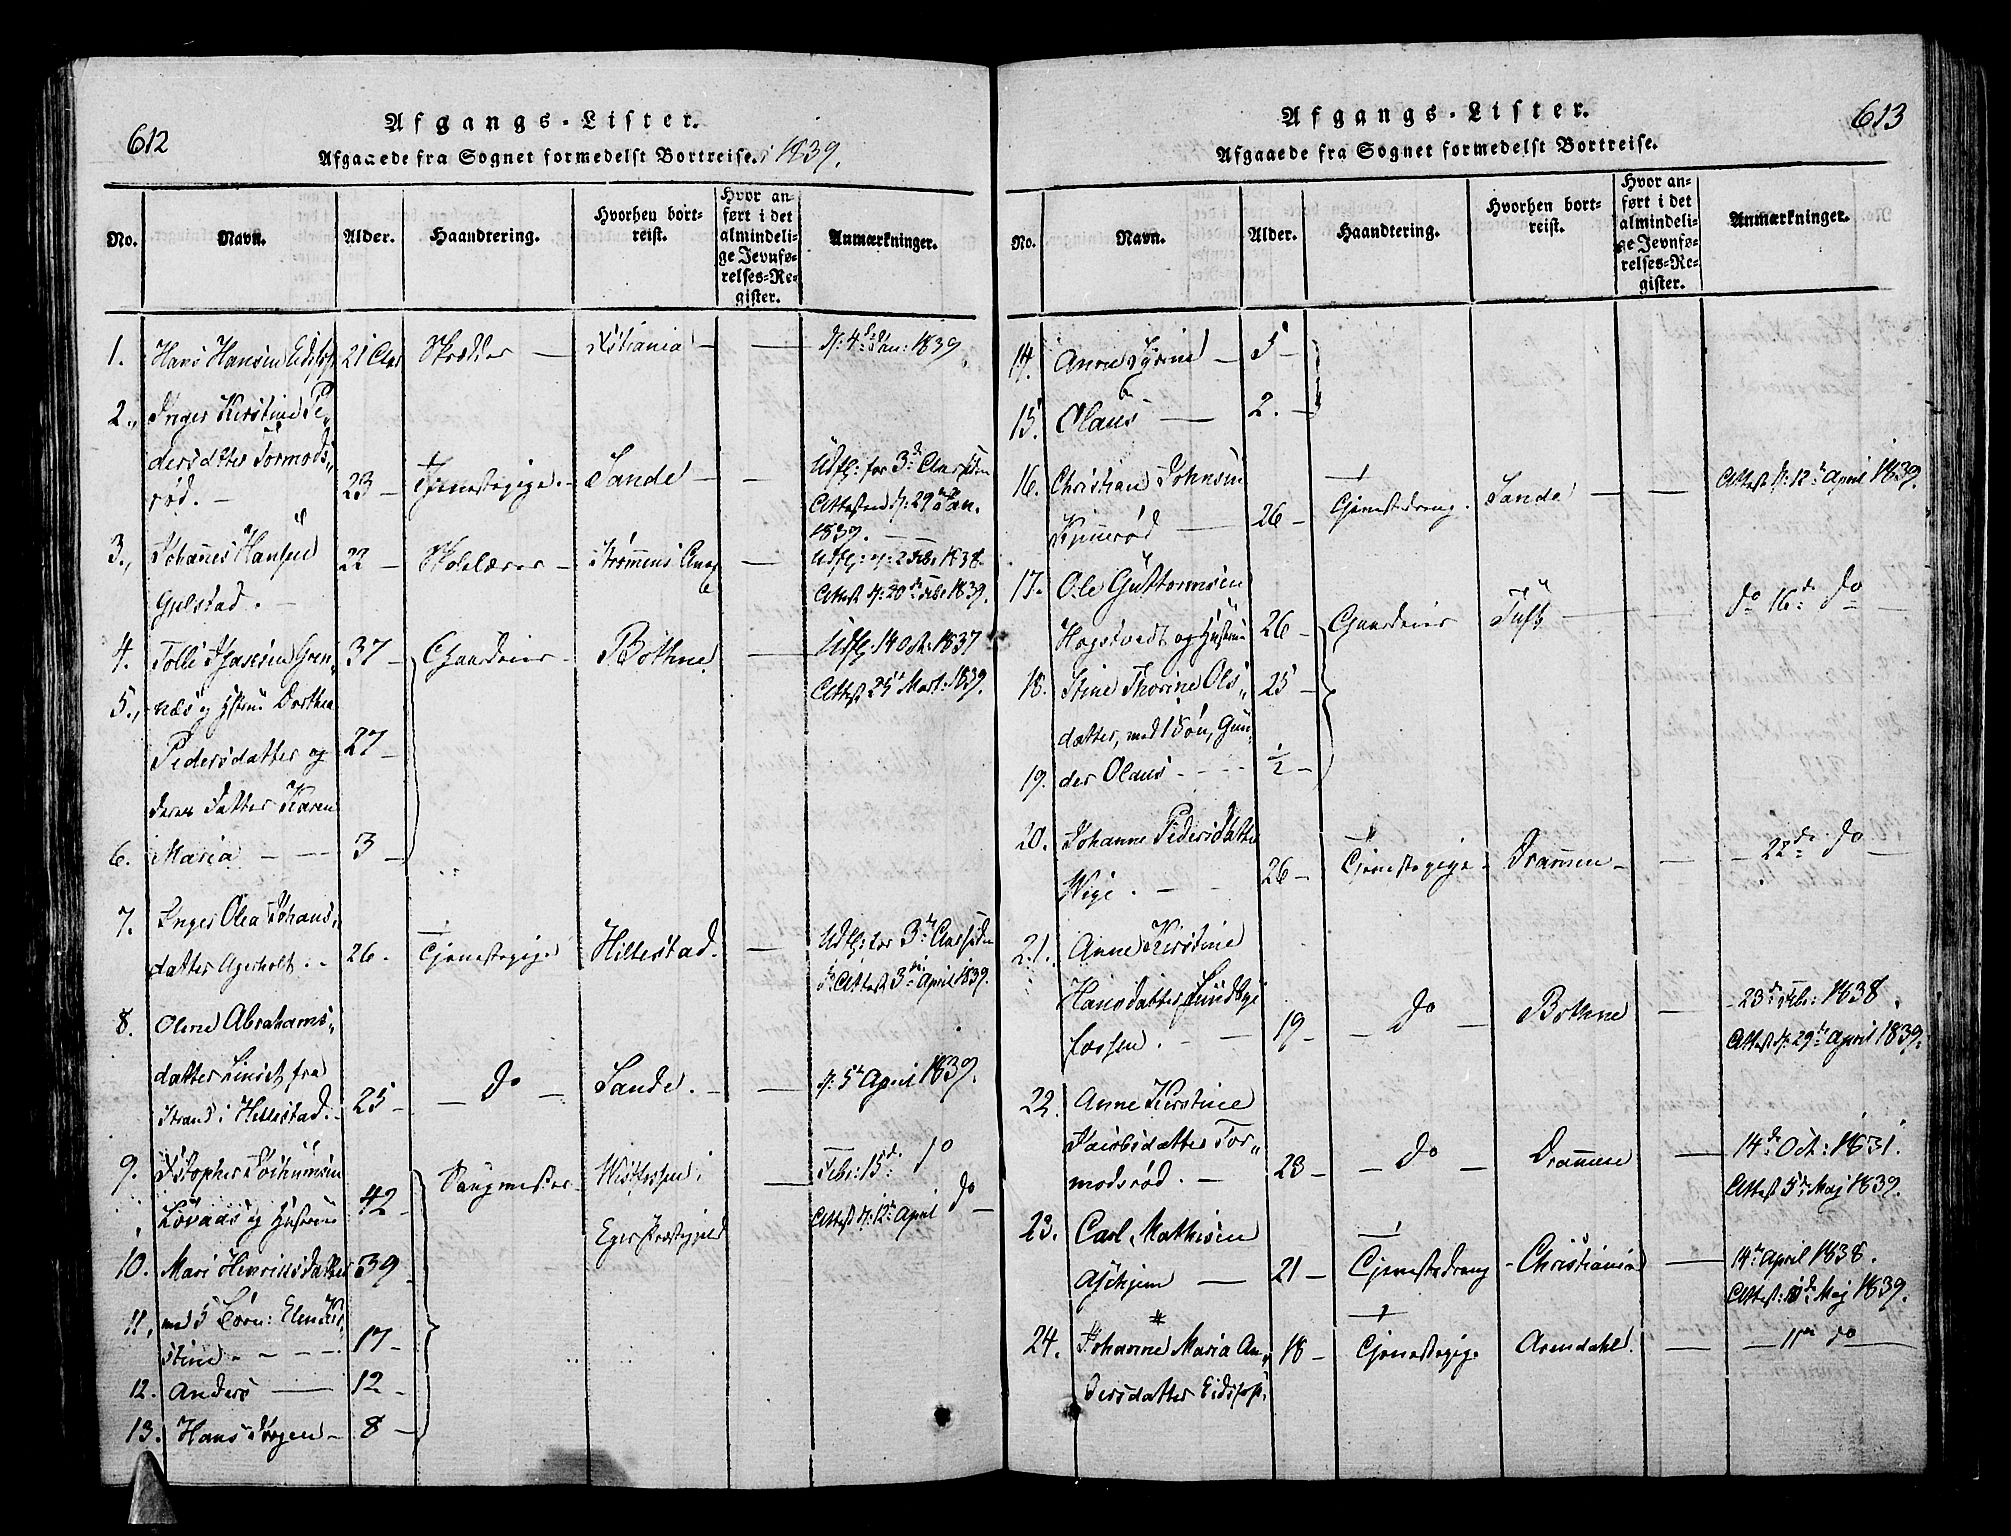 612
Afgangs-Lister.
Afgaaede fra Sognet formedelst Bortreise. i 1839.
No. Navn. Alder. Haandtering. Hvorhen bort-
reist. Hvor an-
ført i det
almindeli-
ge Jevnfø-
relses-Re-
gister. Anmærkninger.
1. Hans Hansen 21 Aar Skrædder — Xstiania — — d: 4de Jan: 1839.
2., Inger Kirstine Pe„
dersdatter Tormods„
rød. — 23 — Tjenestepige. — Sande — — Udfl: for 3de Aar siden
Attesten d: 29de Jan.
1839. —
3., Johannes Hansen 22 — Skolelærer — Strømmens — Udfl: 2 Febr 1838.
. — Attest d: 20de Febr 1839.
4. Tolli 37 — Gaardeier — Bothne — Udfl: 14 Oct: 1837
Attest 25 Mart: 1839.
5., næs og Hstru Dorthea
Pedersdatter og 27 —
deres Datter Karen
6. Maria — — 3 —
7. Inger Olea Johans„
datter Agerholt. — 26. Tjenestepige Hillestad. — Udfl: for 3de Aar siden
Attest 3de April 1839.
8. Oline Abrahams„
datter fra
Strand i Hillestad. — 25 — — do — Sande. — — d: 5te April 1839.
9. Xstopher
Løvaas og Hustrue 42 — Saugmester — i — Febr: 15de do
Eger Præstegjeld Attest d: 12te April do
10. Mari Henriksdatter 39
11. med 5 Børn: Elen Kir„
stine — — — 17 —
12. Anders — 12 —
13. Hans Jørgen — 8 —
613
Afgangs-Lister.
Afgaaede fra Sognet formedelst Bortreise.
No. Navn. Alder. Haandtering. Hvorhen bort-
reist. Hvor an-
ført i det
almindeli-
ge Jevnfø-
relses-Re-
gister. Anmærkninger.
14. Anne — 5 —
15. Olaus — 2. —
16. Christian Johnsen
— 26 — Tjenestedreng. Sande — — Attest d: 12te April 1839.
17. Ole Guttormsen
Hogsvedt og Hustrue 26 — Gaardeier Tuft — — do 16de do —
18. Stine Thorine Ols„ 25 —
datter, med 1 Søn, Gun„
19. der Olaus — — 1/2 —
20. Johanne Pedersdatter
Wige. — — 26 — Tjenestepige — Drammen — — — 22de do —
21. Anne Kirstine
Hansdatter Sundbye
fossen. — — 19 — — do — Bothne — — 23de Febr: 1838.
Attest d: 29de April 1839.
22. Anne Kirstine
Jacobsdatter Tor„
modsrød. — 23 — — do — Drammen — 14de Oct: 1831.
Attest 5te Maj 1839.
23. Carl Mathisen
Askjem — 21 — Tjenestedreng — Christiania — 14de April 1838.
Attest: Maj 1839.
24. Johanne Maria An„ 18 — Tjenestepige Arendahl. — — 11te do —
dersdatter Eidsfos.